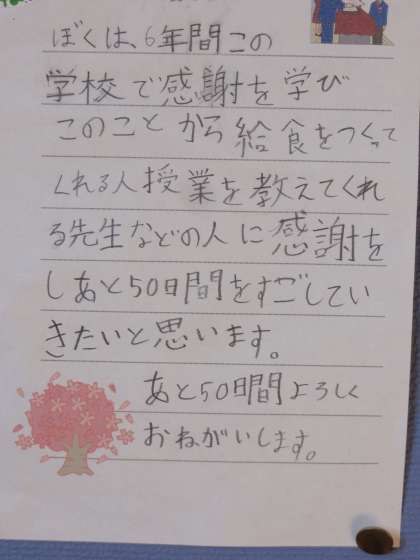 ぼくは、6年間この
学校で感謝を学び
このことから給食をつくって
くれる人授業を教えてくれ
る先生などの人に感謝を
しあと50日間をすごしてい
きたいと思います。
あと50日間よろしく
おねがいします。